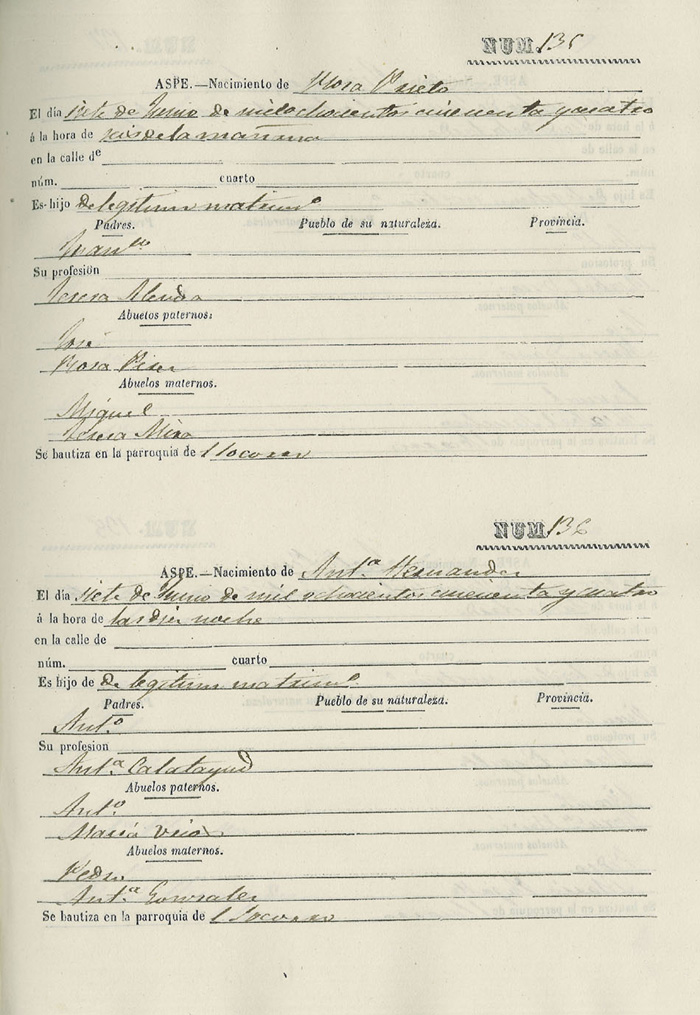 NUM. 135
ASPE.—Nacimiento de Rosa Prieto
El dia siete de Junio de mil ochocientos cincuenta y cuatro
á la hora de seis de la mañana
en la calle de
núm. cuarto
Es hijo de legitimo matrimo
Padres. Pueblo de su naturaleza. Provincia.
Su profesion
Teresa Alenda
Abuelos paternos:
José
Rosa
Abuelos maternos.
Miguel
Teresa Mira
Se bautiza en la parroquia de l Socorro
NUM. 136
ASPE.—Nacimiento de Antª Hernandez
El dia siete de Junio de mil ochocientos cincuenta y cuatro
á la hora de las diez noche
en la calle de
núm. cuarto
Es hijo de de legitimo matrimo
Padres. Pueblo de su naturaleza. Provincia.
Antº
Su profesion
Antª Calatayud
Abuelos paternos.
Antº
Maria
Abuelos maternos.
Pedro
Antª Gonzalez
Se bautiza en la parroquia de l Socorro